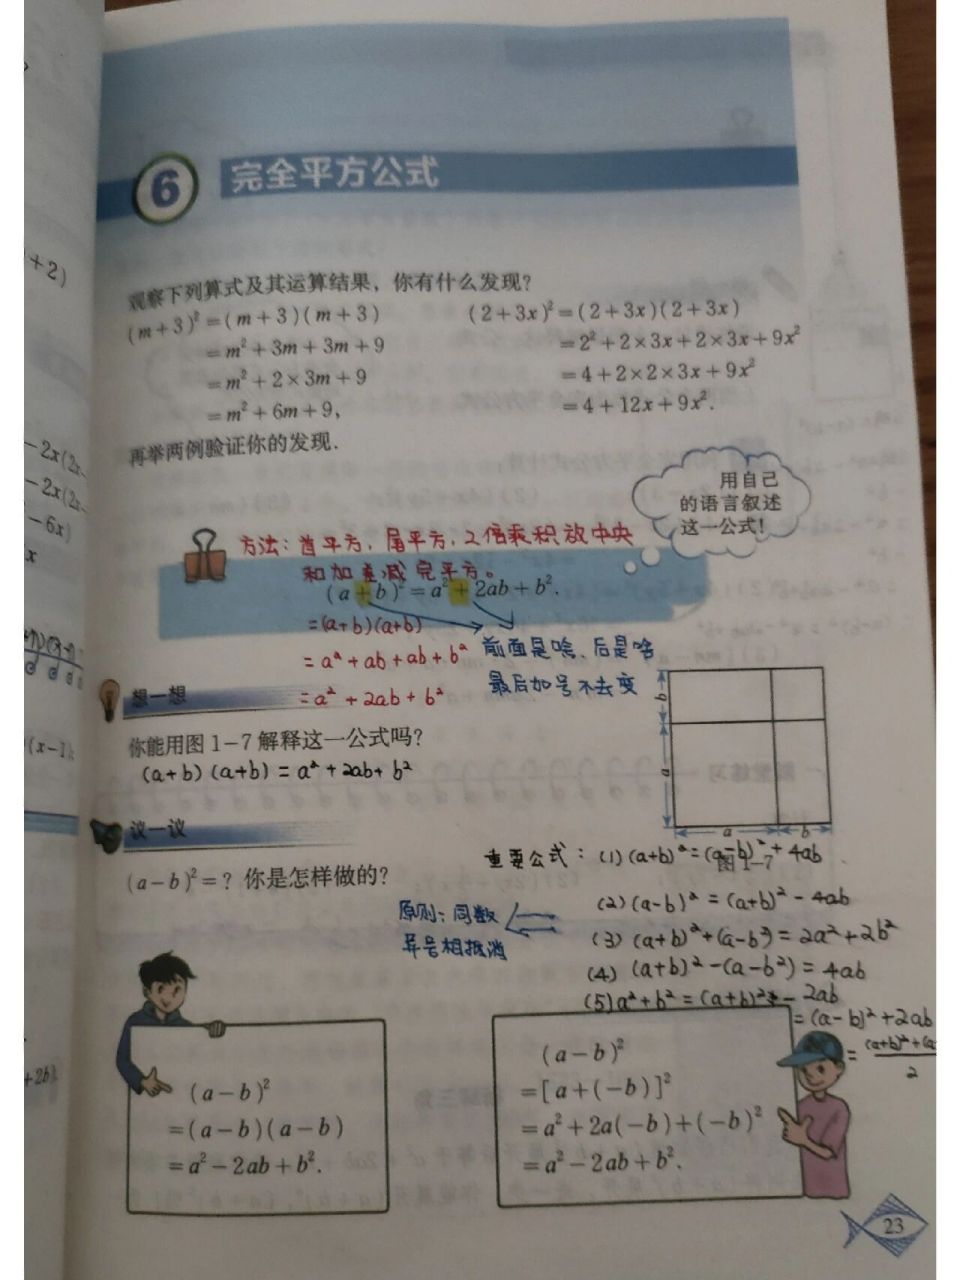 6 完全平方公式
观察下列算式及其运算结果，你有什么发现？
(m+3)²=(m+3)(m+3)
=m²+3m+3m+9
=m²+2×3m+9
=m²+6m+9,
(2+3x)²=(2+3x)(2+3x)
=2²+2×3x+2×3x+9x²
=4+2×2×3x+9x²
=4+12x+9x².
再举两例验证你的发现.
用自己
的语言叙述
这一公式！
方法：首平方，尾平方，2倍乘积放中央
和加差减完平方。
(a+b)²=a²+2ab+b².
=(a+b)(a+b)
=a²+ab+ab+b²
=a²+2ab+b²
前面是啥、后是啥
最后加号不去变
想一想
你能用图1-7解释这一公式吗？
(a+b)(a+b)=a²+2ab+b²
b
a
a
b
图1-7
议一议
(a-b)²=？你是怎样做的？
重要公式：(1)(a+b)²=(a-b)²+4ab
(2)(a-b)²=(a+b)²-4ab
(3)(a+b)²+(a-b²)=2a²+2b²
(4)(a+b)²-(a-b²)=4ab
(5)a²+b²=(a+b)²-2ab
=(a-b)²+2ab
=(a+b)²+(a
2
原则：同数
异号相抵消
(a-b)²
=(a-b)(a-b)
=a²-2ab+b².
(a-b)²
=[a+(-b)]²
=a²+2a(-b)+(-b)²
=a²-2ab+b².
23
+2)
-2x(2x-
-2x(2x-
-6x)
x
(x-1)
+2b)